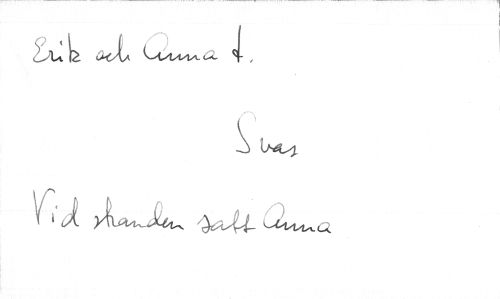 Erik och Anna t.
Svas
Vid stranden satt Anna